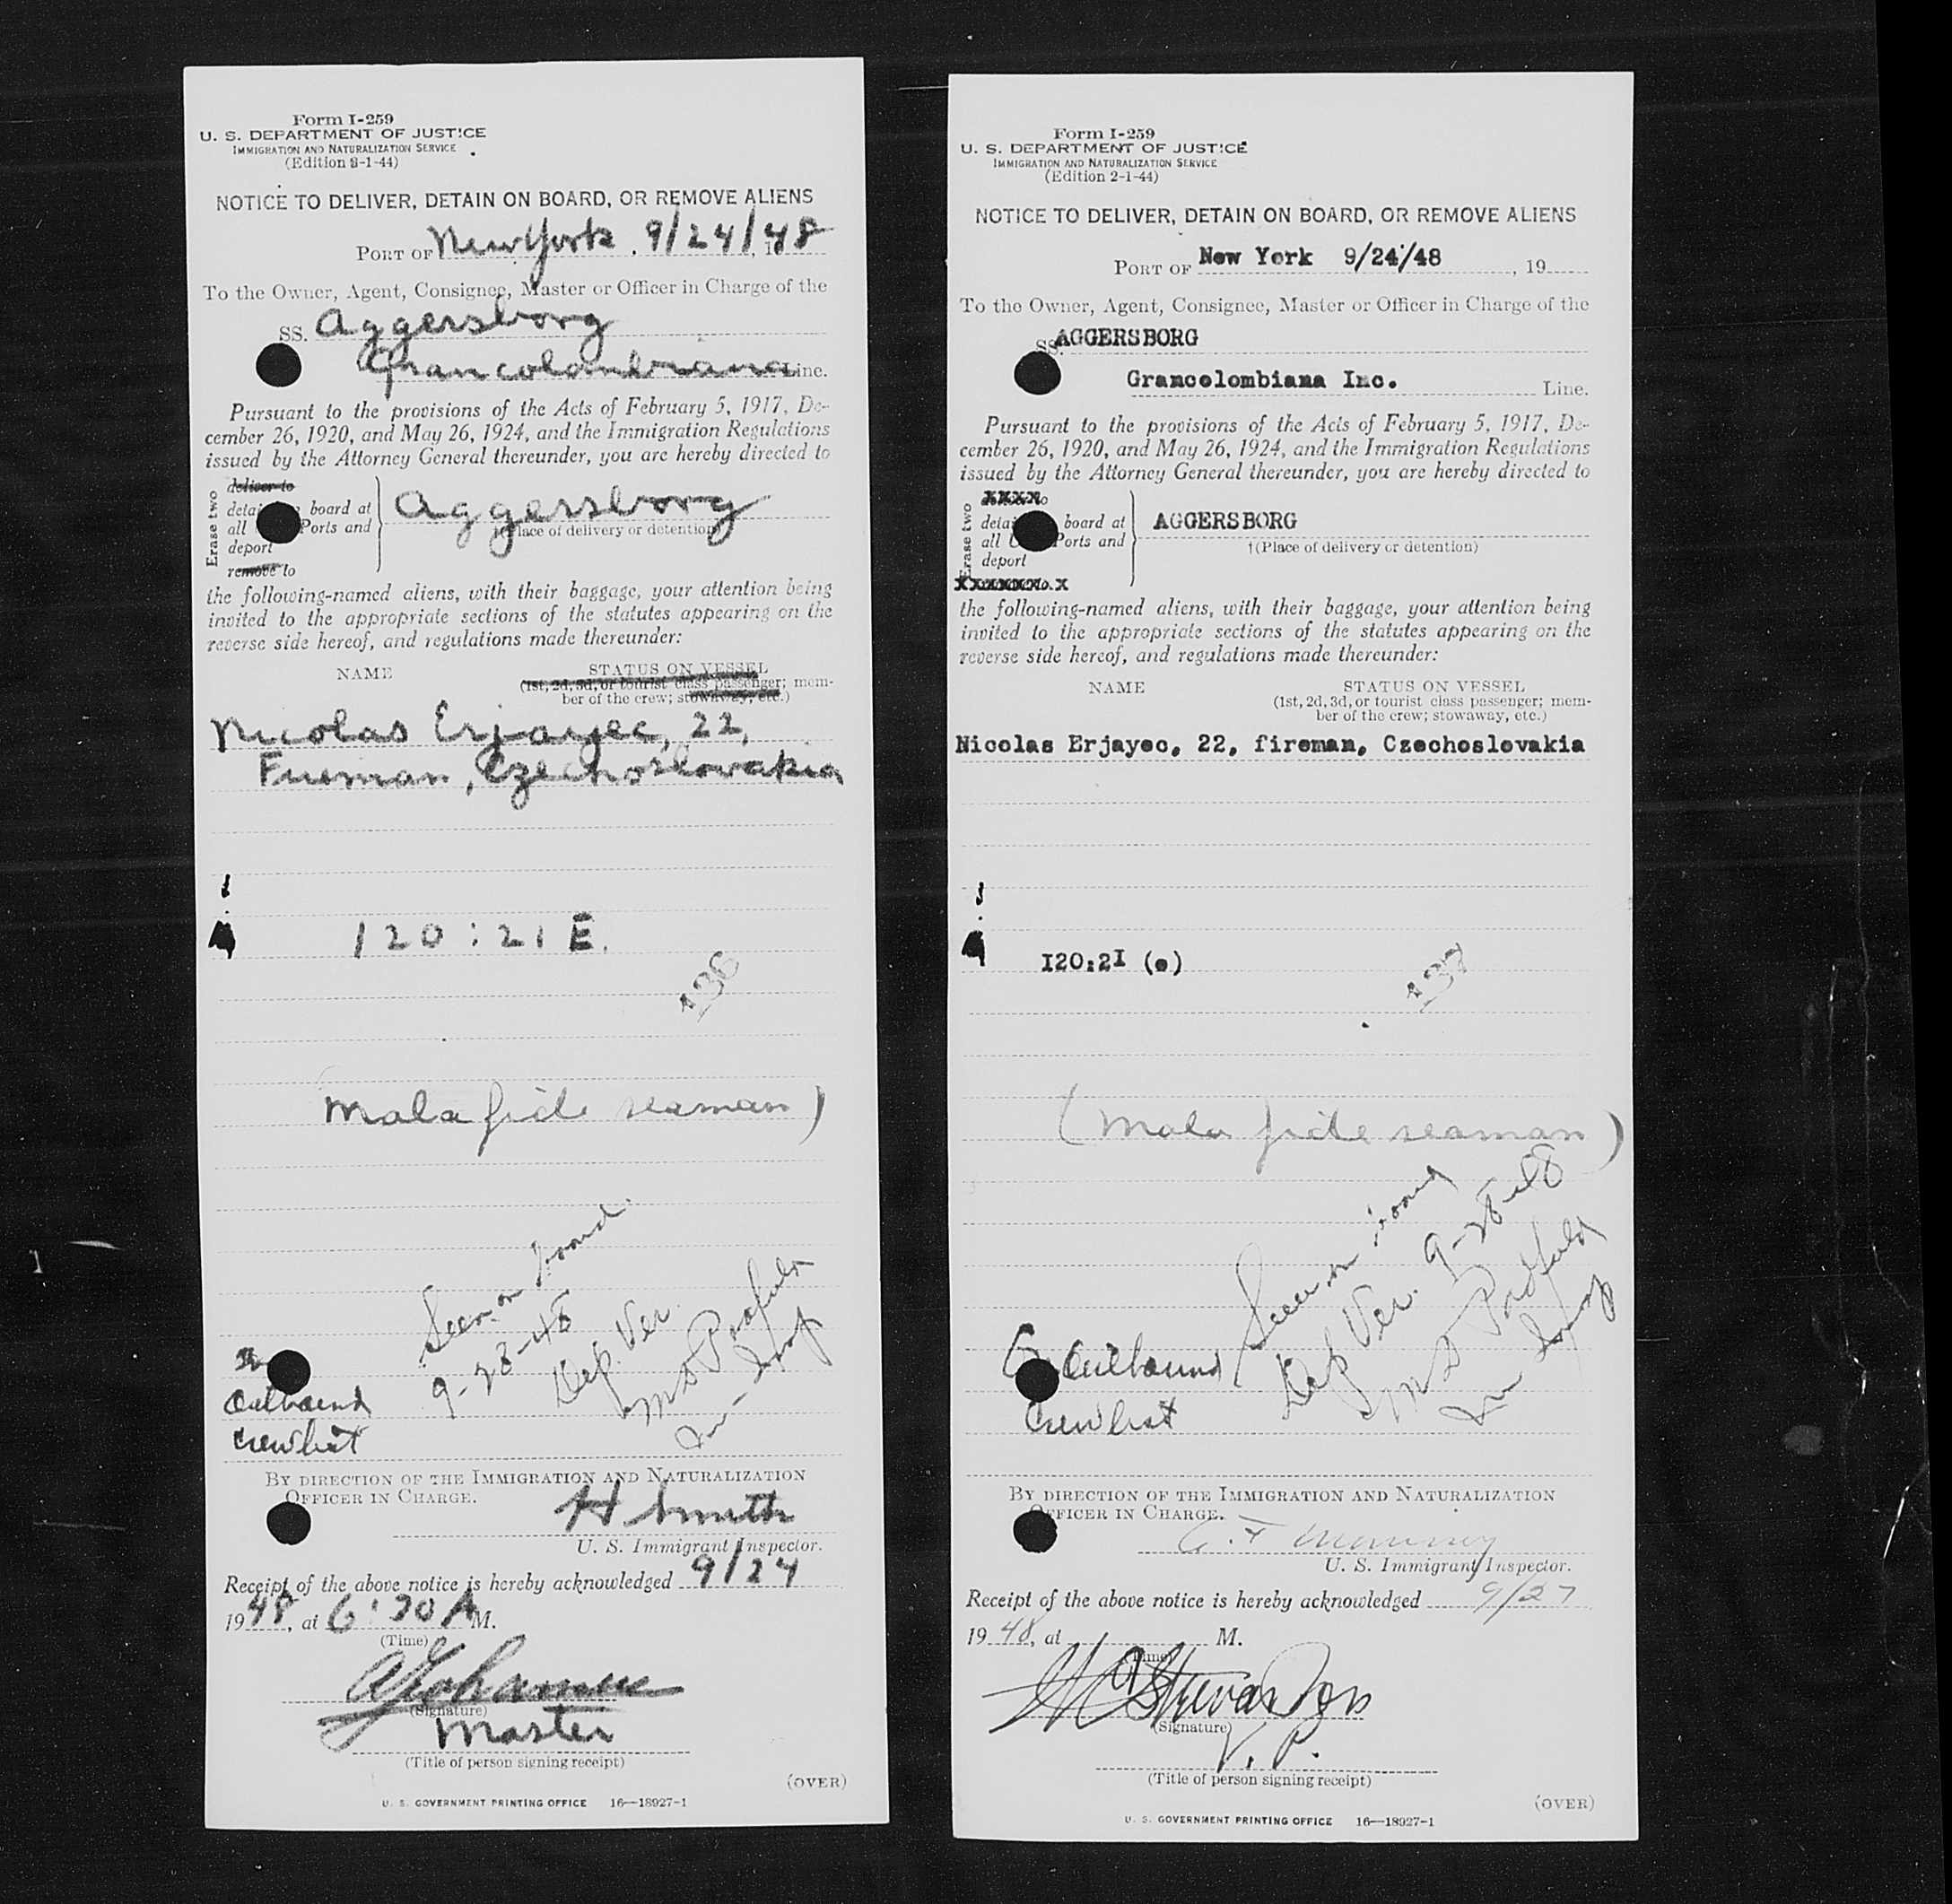 Form I-259
U. S. DEPARTMENT OF JUSTICE
IMMIGRATION AND NATURALIZATION SERVICE
(Edition 2-1-44)
NOTICE TO DELIVER, DETAIN ON BOARD, OR REMOVE ALIENS
PORT OF New York 9/24/48
To the Owner, Agent, Consignee, Master or Officer in Charge of the
SS. Aggersborg
Grancolombiana Line.
Pursuant to the provisions of the Acts of February 5, 1917, De-
cember 26, 1920, and May 26, 1924, and the Immigration Regulations
issued by the Attorney General thereunder, you are hereby directed to
Erase two
deliver to
detain board at
all Ports and
deport
remove to
Aggersborg
(Place of delivery or detention)
the following-named aliens, with their baggage, your attention being
invited to the appropriate sections of the statutes appearing on the
reverse side hereof, and regulations made thereunder:
NAME STATUS ON VESSEL
(1st, 2d, 3d, or tourist class passenger; mem-
ber of the crew; stowaway, etc.)
Nicolas Erjayec, 22,
Fireman, Czechoslovakia
120:21 E.
136
Mala fide seaman)
Seen on board
9-28-48
Dep. Ver.
Outbound
Crew list
BY DIRECTION OF THE IMMIGRATION AND NATURALIZATION
OFFICER IN CHARGE.
H Smith
U. S. Immigrant Inspector.
Receipt of the above notice is hereby acknowledged 9/24
1948, at 6:30 A M.
(Time)
(Signature)
Master
(Title of person signing receipt)
(OVER)
U. S. GOVERNMENT PRINTING OFFICE 16—18927-1
Form I-259
U. S. DEPARTMENT OF JUSTICE
IMMIGRATION AND NATURALIZATION SERVICE
(Edition 2-1-44)
NOTICE TO DELIVER, DETAIN ON BOARD, OR REMOVE ALIENS
PORT OF New York 9/24/48, 19
To the Owner, Agent, Consignee, Master or Officer in Charge of the
SS. AGGERSBORG
Grancolombiana Inc. Line.
Pursuant to the provisions of the Acts of February 5, 1917, De-
cember 26, 1920, and May 26, 1924, and the Immigration Regulations
issued by the Attorney General thereunder, you are hereby directed to
Erase two
detain board at
all Ports and
deport
AGGERSBORG
†(Place of delivery or detention)
the following-named aliens, with their baggage, your attention being
invited to the appropriate sections of the statutes appearing on the
reverse side hereof, and regulations made thereunder:
NAME STATUS ON VESSEL
(1st, 2d, 3d, or tourist class passenger; mem-
ber of the crew; stowaway, etc.)
Nicolas Erjayec, 22, fireman, Czechoslovakia
I20:2I (e)
137
(Mala fide seaman)
Seen on board
Dep Ver. 9-28-48
Outbound
Crew list
BY DIRECTION OF THE IMMIGRATION AND NATURALIZATION
OFFICER IN CHARGE.
U. S. Immigrant Inspector.
Receipt of the above notice is hereby acknowledged 9/27
1948, at M.
(Time)
(Signature)
V. P.
(Title of person signing receipt)
(OVER)
U. S. GOVERNMENT PRINTING OFFICE 16—18927-1